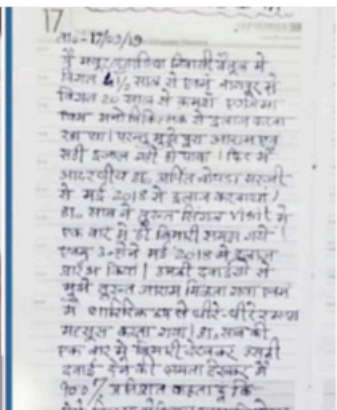 17
ता.-17/09/19
मैं मयूर लुनाडिया निवासी बैतूल में
विगत 4½ साल से एवम् नागपुर से
विगत 20 साल से क्रमशः एलर्जिमा
एवम मनोचिकित्सक से इलाज करवा
रहा था। परन्तु मुझे पुरा आराम एवं
सही इलाज नहीं हो पाया। फिर मैं
आदरणीय डा. अर्पित चोपडा सरजी
से मई 2018 से इलाज करवाया।
डा. साब ने तुरन्त सिंगल visit में
एक बार में ही बिमारी समझ गये
एवम उन्होंने मई 2018 में इलाज
प्रारंभ किया। उनकी दवाईयों से
मुझे तुरन्त आराम मिलता गया एवम
में शारिरिक रूप से धीरे-धीरे स्वस्थ
महसूस करता गया। डा. साब की
एक बार में बिमारी देखकर उसकी
दवाई देने की क्षमता देखकर में
100% प्रतिशत कहता हूं कि